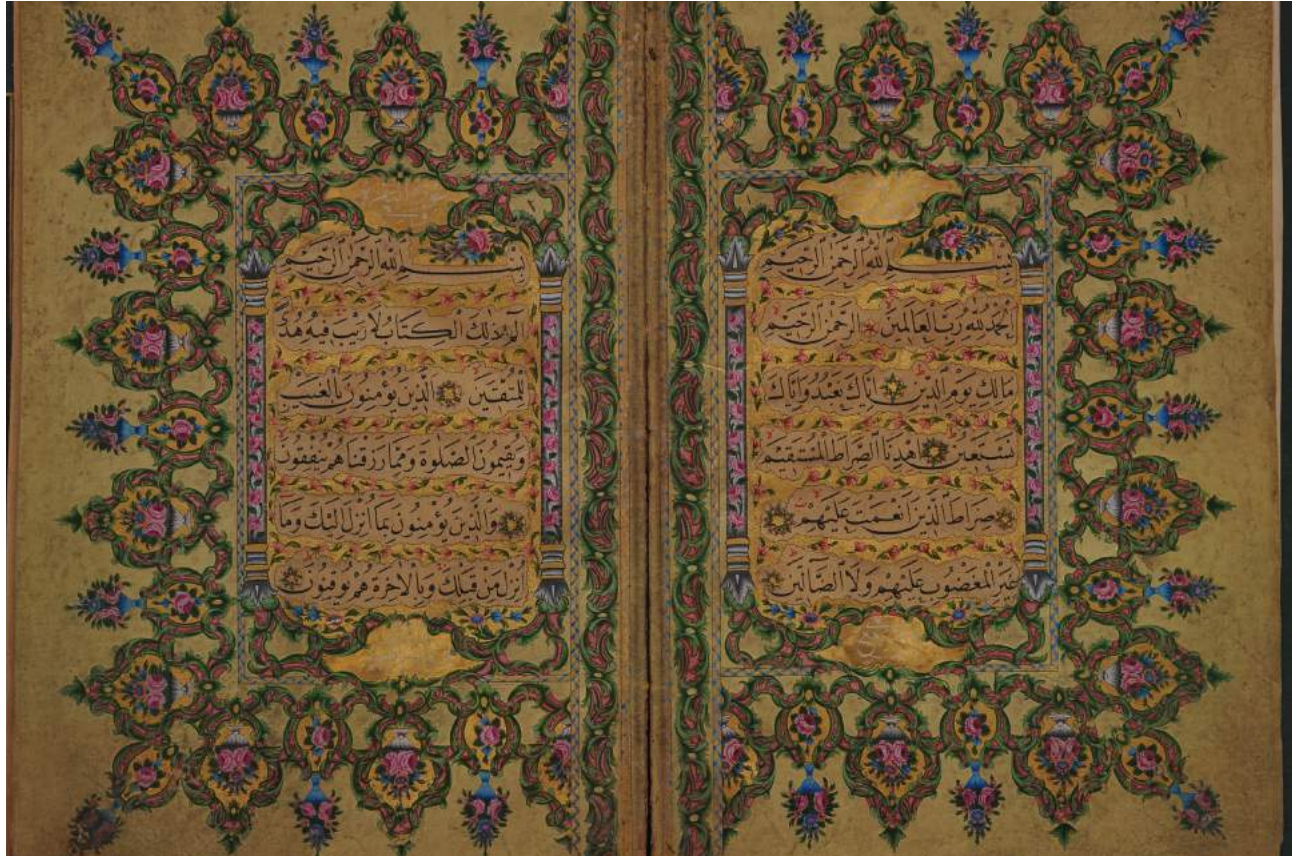 بِسْمِ اللّٰهِ الرَّحْمٰنِ الرَّحِيمِ
اَلْحَمْدُ لِلّٰهِ رَبِّ الْعَالَمِينَ الرَّحْمٰنِ الرَّحِيمِ
مَالِكِ يَوْمِ الدِّينِ اِيَّاكَ نَعْبُدُ وَاِيَّاكَ
نَسْتَعِينُ اِهْدِنَا الصِّرَاطَ الْمُسْتَقِيمَ
صِرَاطَ الَّذِينَ اَنْعَمْتَ عَلَيْهِمْ
غَيْرِ الْمَغْضُوبِ عَلَيْهِمْ وَلَا الضَّالِّينَ
بِسْمِ اللّٰهِ الرَّحْمٰنِ الرَّحِيمِ
الٓمٓ ذٰلِكَ الْكِتَابُ لَا رَيْبَ فِيهِ هُدًى
لِلْمُتَّقِينَ الَّذِينَ يُؤْمِنُونَ بِالْغَيْبِ
وَيُقِيمُونَ الصَّلٰوةَ وَمِمَّا رَزَقْنَاهُمْ يُنْفِقُونَ
وَالَّذِينَ يُؤْمِنُونَ بِمَا اُنْزِلَ اِلَيْكَ وَمَا
اُنْزِلَ مِنْ قَبْلِكَ وَبِالْاٰخِرَةِ هُمْ يُوقِنُونَ